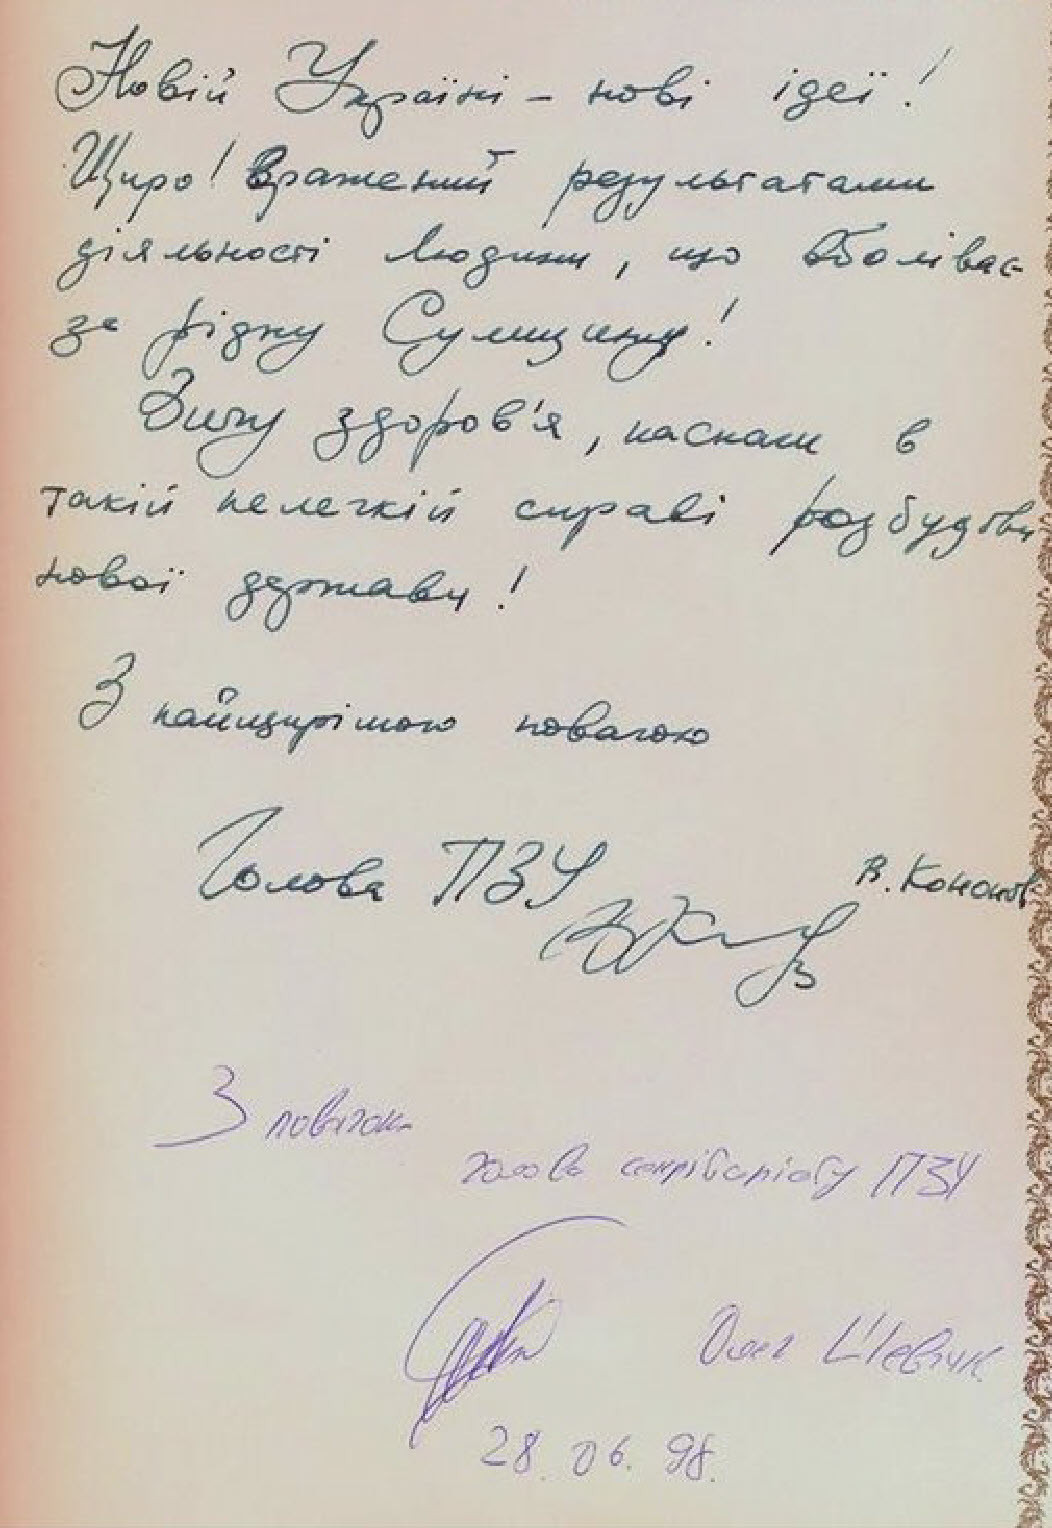 Новій Україні – нові ідеї!
Щиро! вражений результатами
діяльності Людини, що вболіває
за рідну Сумщину!
Зичу здоров'я, наснаги в
такій нелегкій справі розбудови
нової держави!
З найщирішою повагою
Голова ПЗУ
В. Кононов
З повагою
голова секретаріату ПЗУ
Олег Шевчук
28.06.98.